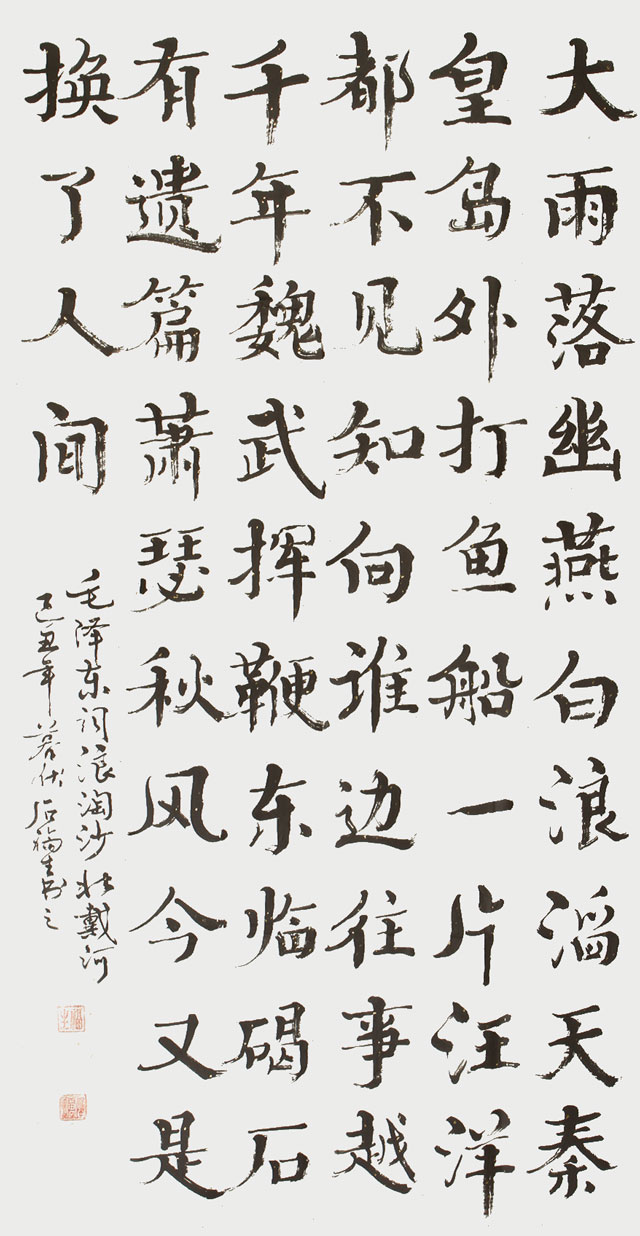 大雨落幽燕白浪滔天秦
皇岛外打鱼船一片汪洋
都不见知向谁边往事越
千年魏武挥鞭东临碣石
有遗篇萧瑟秋风今又是
换了人间
毛泽东词浪淘沙北戴河
己丑年暮伏石福生书之